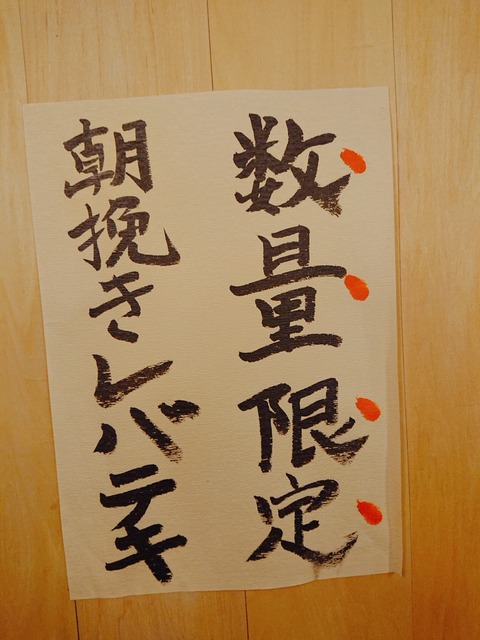 数量限定
朝挽きレバテキ